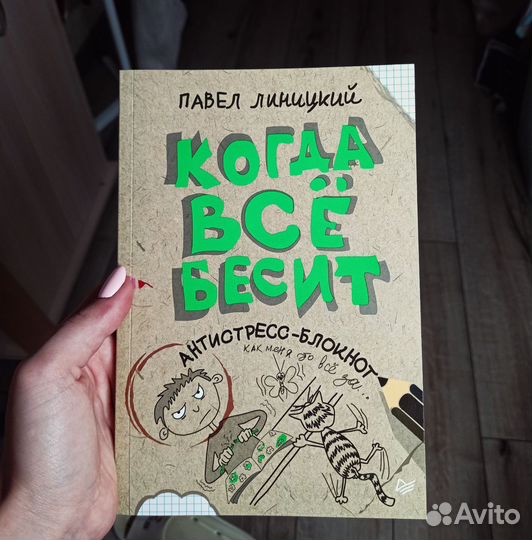 ПАВЕЛ ЛИНИЦКИЙ
КОГДА
ВСЁ
БЕСИТ
АНТИСТРЕСС-БЛОКНОТ
КАК МЕНЯ ЭТО ВСЁ ЗА...
Avito